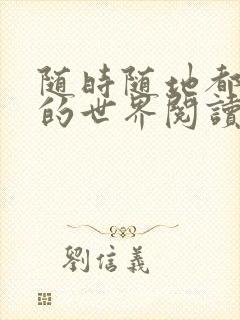 随時随地都
的世界閱讀
劉信義